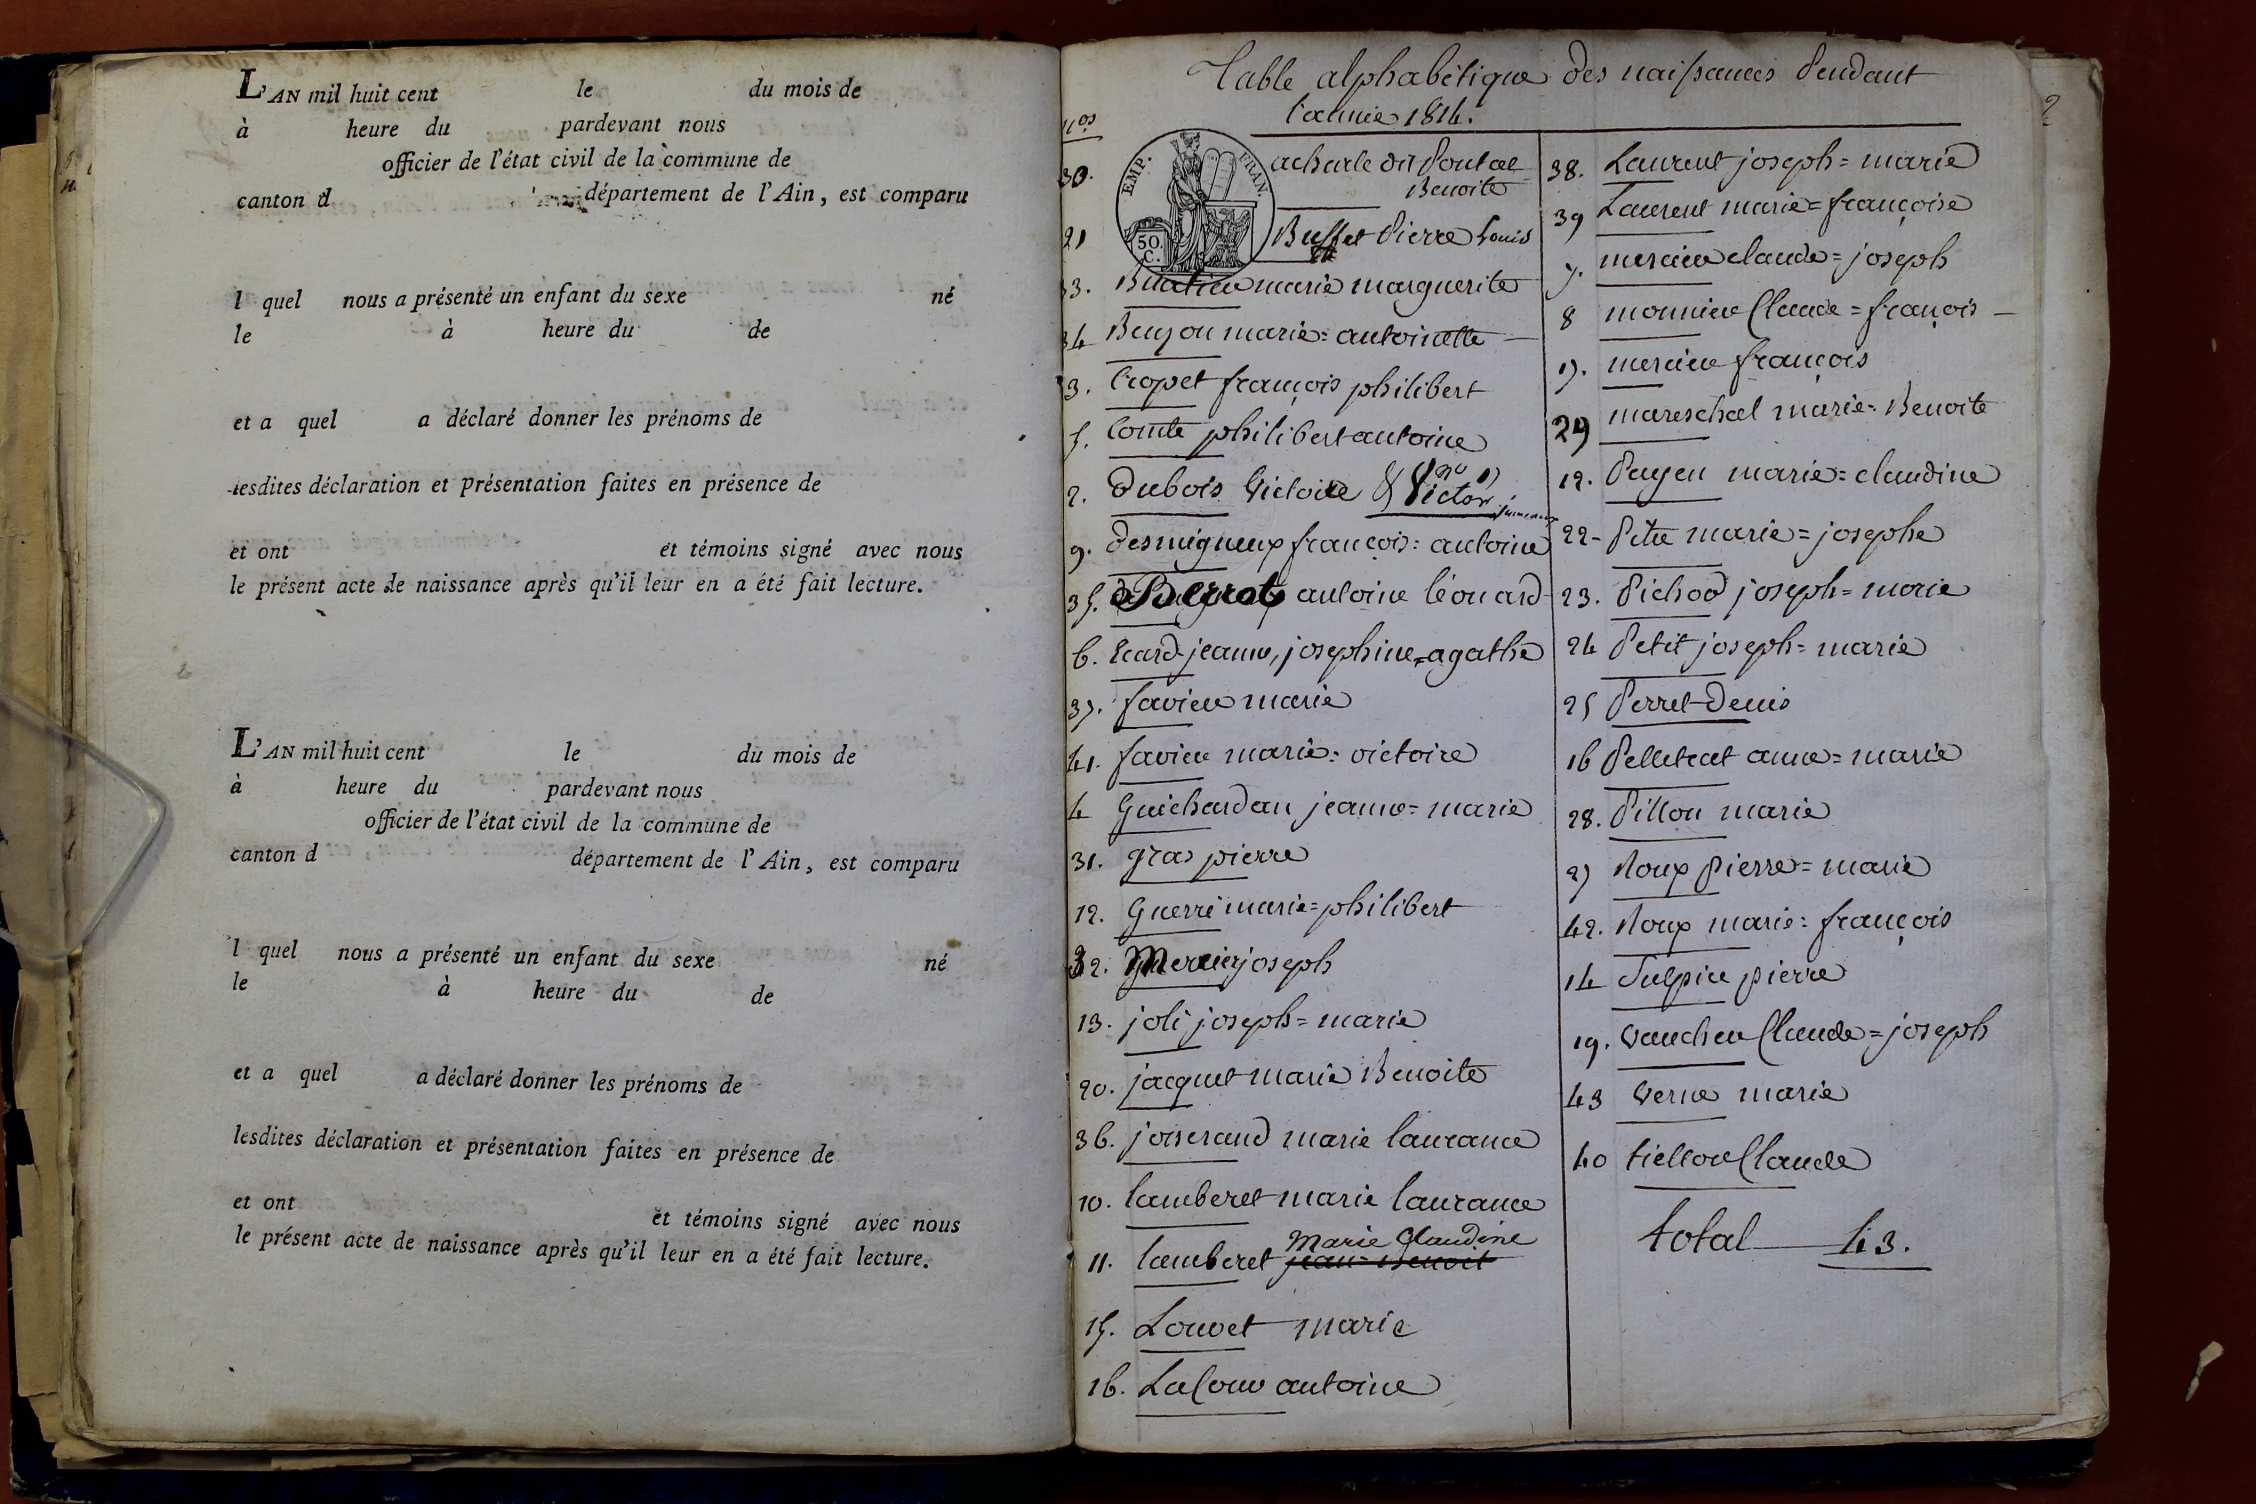 L'AN mil huit cent le du mois de
à heure du pardevant nous
officier de l'état civil de la commune de
canton d département de l'Ain, est comparu
l quel nous a présenté un enfant du sexe né
le à heure du de
et a quel a déclaré donner les prénoms de
lesdites déclaration et présentation faites en présence de
et ont et témoins signé avec nous
le présent acte de naissance après qu'il leur en a été fait lecture.
L'AN mil huit cent le du mois de
à heure du pardevant nous
officier de l'état civil de la commune de
canton d département de l'Ain, est comparu
l quel nous a présenté un enfant du sexe né
le à heure du de
et a quel a déclaré donner les prénoms de
lesdites déclaration et présentation faites en présence de
et ont et témoins signé avec nous
le présent acte de naissance après qu'il leur en a été fait lecture.
Table alphabétique des naissances pendant
l'année 1814.
nos
EMP. FRAN.
50. C.
30. acharle dit Pontal
Benoite
21 Buffet Pierre Louis
33. marie marguerite
34 marie=antoinette
3. Cropet françois philibert
5. Comte philibert antoine
2. Dubois Victoire & Victor no 1) jumeaux
9. Desmigneux françois=antoine
35. antoine léonard
6. Ecard jeanne, josephine=agathe
37. favier marie
41. favier marie=victoire
4 Guichardan jeanne=marie
31. gras pierre
12. Guerre marie=philibert
32. Mercier joseph
13. joli joseph=marie
20. jacquet marie Benoite
36. joiserand marie laurance
10. lamberet marie laurance
marie Claudine
11. lamberet jean=Benoit
15. Louvet marie
16. antoine
38. Laurent joseph=marie
39 Laurent marie=françoise
7. mercier claude=joseph
8 monnier Claude=françois
17. mercier françois
29 mareschal marie=Benoite
12. Payen marie=claudine
22- marie=josephe
23. Pichod joseph=marie
24 Petit joseph=marie
25 Perret Denis
16 Pelletrat anne=marie
28. Pillon marie
27 Roux Pierre=marie
42. Roux marie=françois
14 Sulpice pierre
19. Vaucher Claude=joseph
43 Verne marie
40 Claude
total 43.